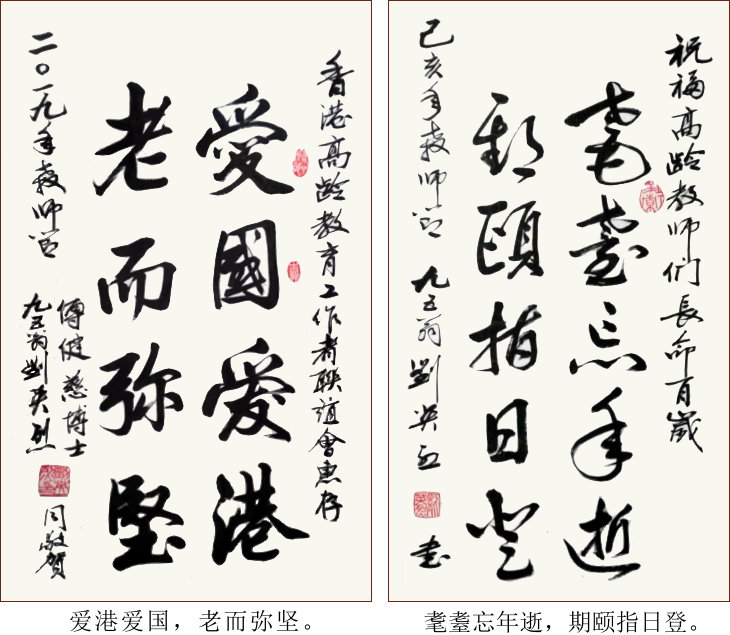 香港高龄教育工作者联谊會惠存
愛國愛港
老而弥堅
二〇一九年教师节
傅健慈博士
九五翁劉英烈
同敬賀
爱港爱国，老而弥坚。
祝福高龄教师們長命百歲
耄耋忘年逝
期頤指日登
己亥年教师节 九五翁劉英烈 書
耄耋忘年逝，期颐指日登。